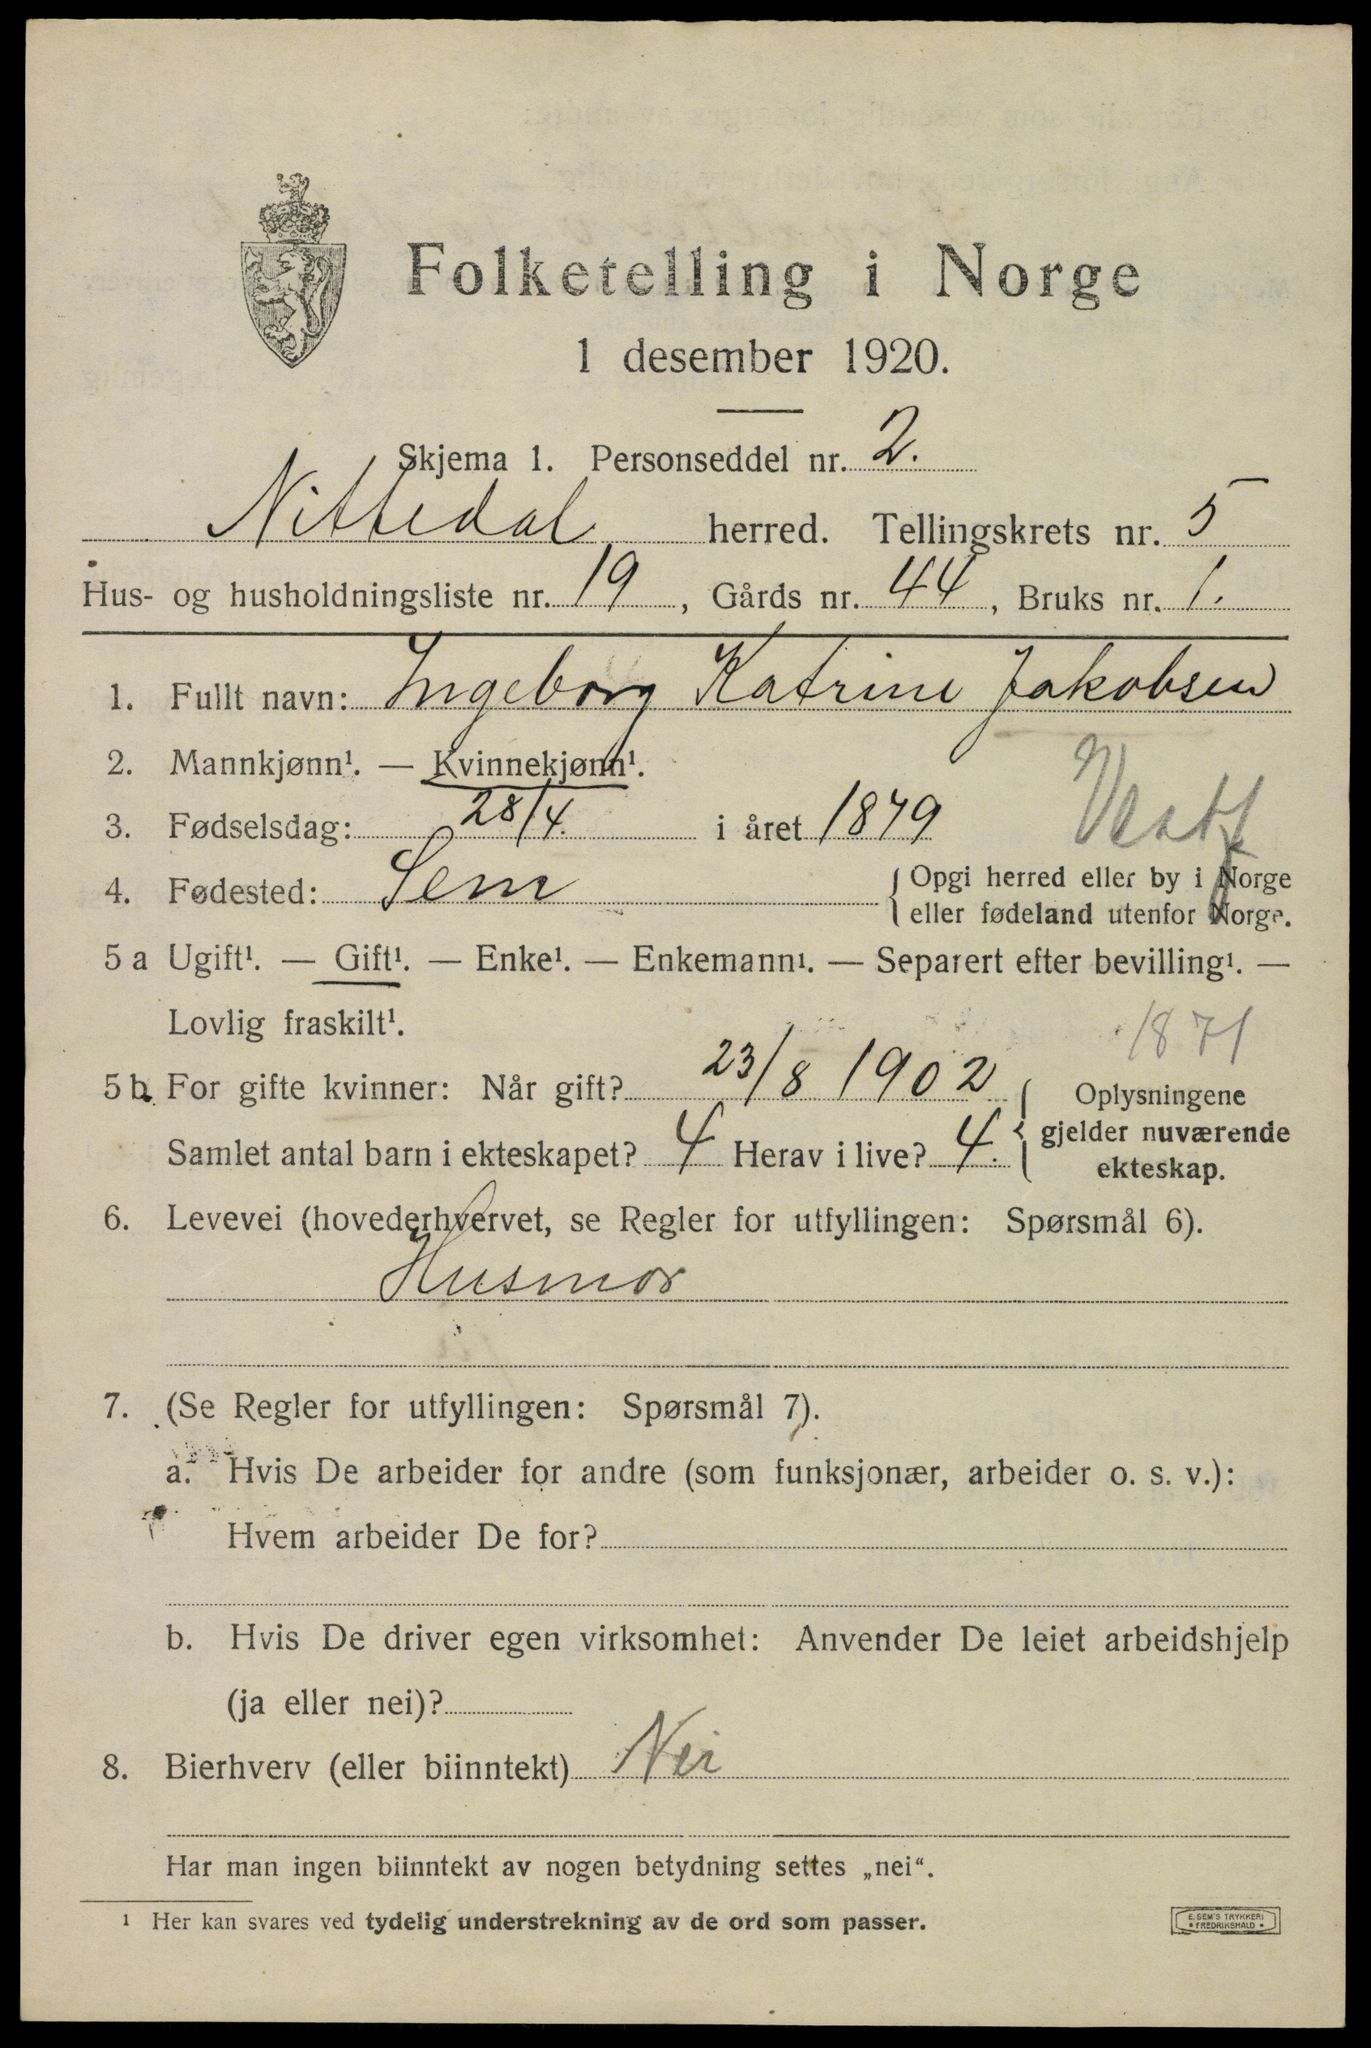 Folketelling i Norge
1 desember 1920.
Skjema 1. Personseddel nr. 2.
Nittedal herred. Tellingskrets nr. 5
Hus- og husholdningsliste nr. 19, Gårds nr. 44, Bruks nr. 1.
1. Fullt navn: Ingeborg Katrine Jakobsen
2. Mannkjønn¹. — Kvinnekjønn¹.
3. Fødselsdag: 28/4. i året 1879
Vestf
4. Fødested: Sem {Opgi herred eller by i Norge
eller fødeland utenfor Norge.
5 a Ugift¹. — Gift¹. — Enke¹. — Enkemann¹. — Separert efter bevilling¹. —
Lovlig fraskilt¹.
1871
5 b. For gifte kvinner: Når gift? 23/8 1902 { Oplysningene
gjelder nuværende
ekteskap.
Samlet antal barn i ekteskapet? 4 Herav i live? 4.
6. Levevei (hovederhvervet, se Regler for utfyllingen: Spørsmål 6).
Husmor
7. (Se Regler for utfyllingen: Spørsmål 7).
a. Hvis De arbeider for andre (som funksjonær, arbeider o. s. v.):
Hvem arbeider De for?
b. Hvis De driver egen virksomhet: Anvender De leiet arbeidshjelp
(ja eller nei)?
8. Bierhverv (eller biinntekt) Nei
Har man ingen biinntekt av nogen betydning settes „nei“.
¹ Her kan svares ved tydelig understrekning av de ord som passer.
E. SEM'S TRYKKERI
FREDRIKSHALD